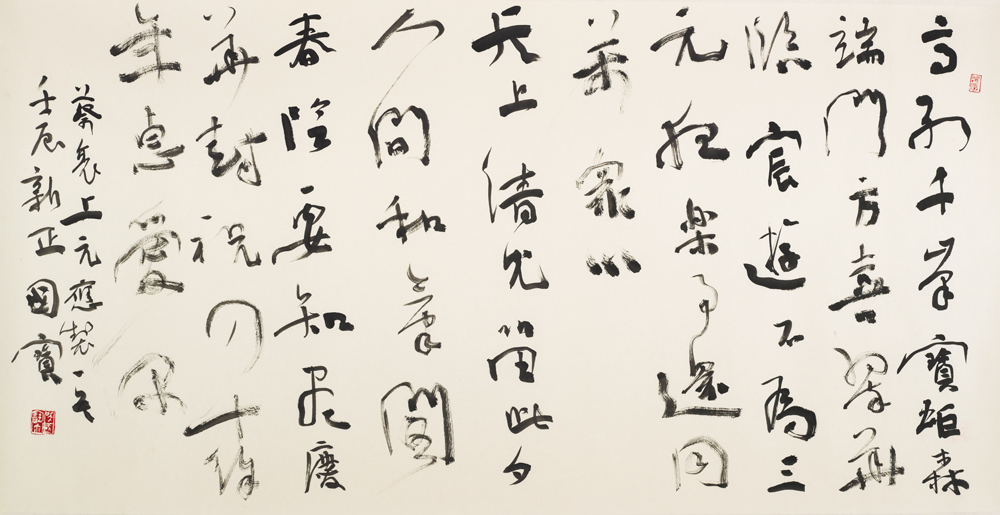 高列千峯寶炬森
端門方喜翠華
臨宸遊不為三
元夜樂事還同
萬眾心
天上清光留此夕
人間和氣閣
春陰要知盡慶
華封祝四十餘
年惠愛深
蔡襄上元應製一首
壬辰新正國寶